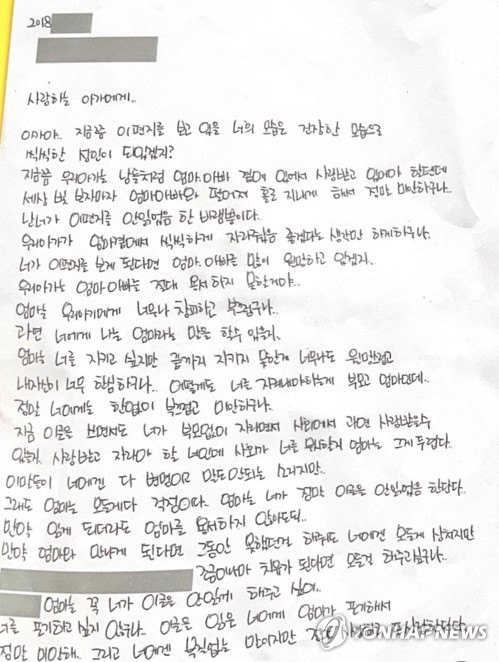 2018
사랑하는 아가에게..
아가야. 지금쯤 이편지를 보고 있을 너의 모습은 건장한 모습으로
씩씩한 성인이 되있겠지?
지금쯤 우리아가는 남들처럼 엄마.아빠 곁에 있어서 사랑받고 있어야 할텐데
세상 빛 보자마자 엄마아빠와 떨어져 홀로 지내게 해서 정말 미안하구나..
난 너가 이편지를 안읽었음 한 바램뿐이다.
우리아가가 엄마곁에서 씩씩하게 자라주었음 좋겠다는 생각만 하게하구나.
너가 이편지를 보게 된다면 엄마.아빠를 많이 원망하고 있겠지.
우리아가는 엄마.아빠를 절대 용서하지 못할거야..
엄마는 우리아기에게 너무나 창피하고 부끄럽구나..
과연 너에게 나는 엄마라는 말을 할수 있을지.
엄마는 너를 지키고 싶지만 끝까지 지키지 못한게 너무나도 원망스럽고
내자신이 너무 한심하구나.. 어떻게든 너를 지켜내야하는게 부모고 엄마인데..
정말 너에게는 한없이 부끄럽고 미안하구나.
지금 이글을 쓰면서도 너가 부모없이 지내면서 사회에서 과연 사랑받을수
있을지. 사랑받고 자라야 할 너인데 사회가 너를 무시할까 엄마는 그게 두렵다.
이 말들이 너에겐 다 변명이고 말도안되는 소리지만..
그래도 엄마는 모든게다 걱정이다.. 엄마는 너가 정말 이글을 안읽었음 한단다.
만약 읽게 되더라도 엄마를 용서하지 않아도되..
만약 엄마와 만나게 된다면 그동안 못해줬던거 하루도 너에겐 모든게 상처지만
조금이나마 치유가 된다면 모든걸 해주고싶구나..
엄마는 꼭 너가 이글을 안읽게 해주고 싶어.
너를 포기하고 싶지 않구나.. 이글을 읽은 너에게 엄마가 포기해서
정말 미안해.. 그리고 너에겐 부질없는 말이지만 정말 사랑하고 또 사랑한단다.
YONHAPNEWS